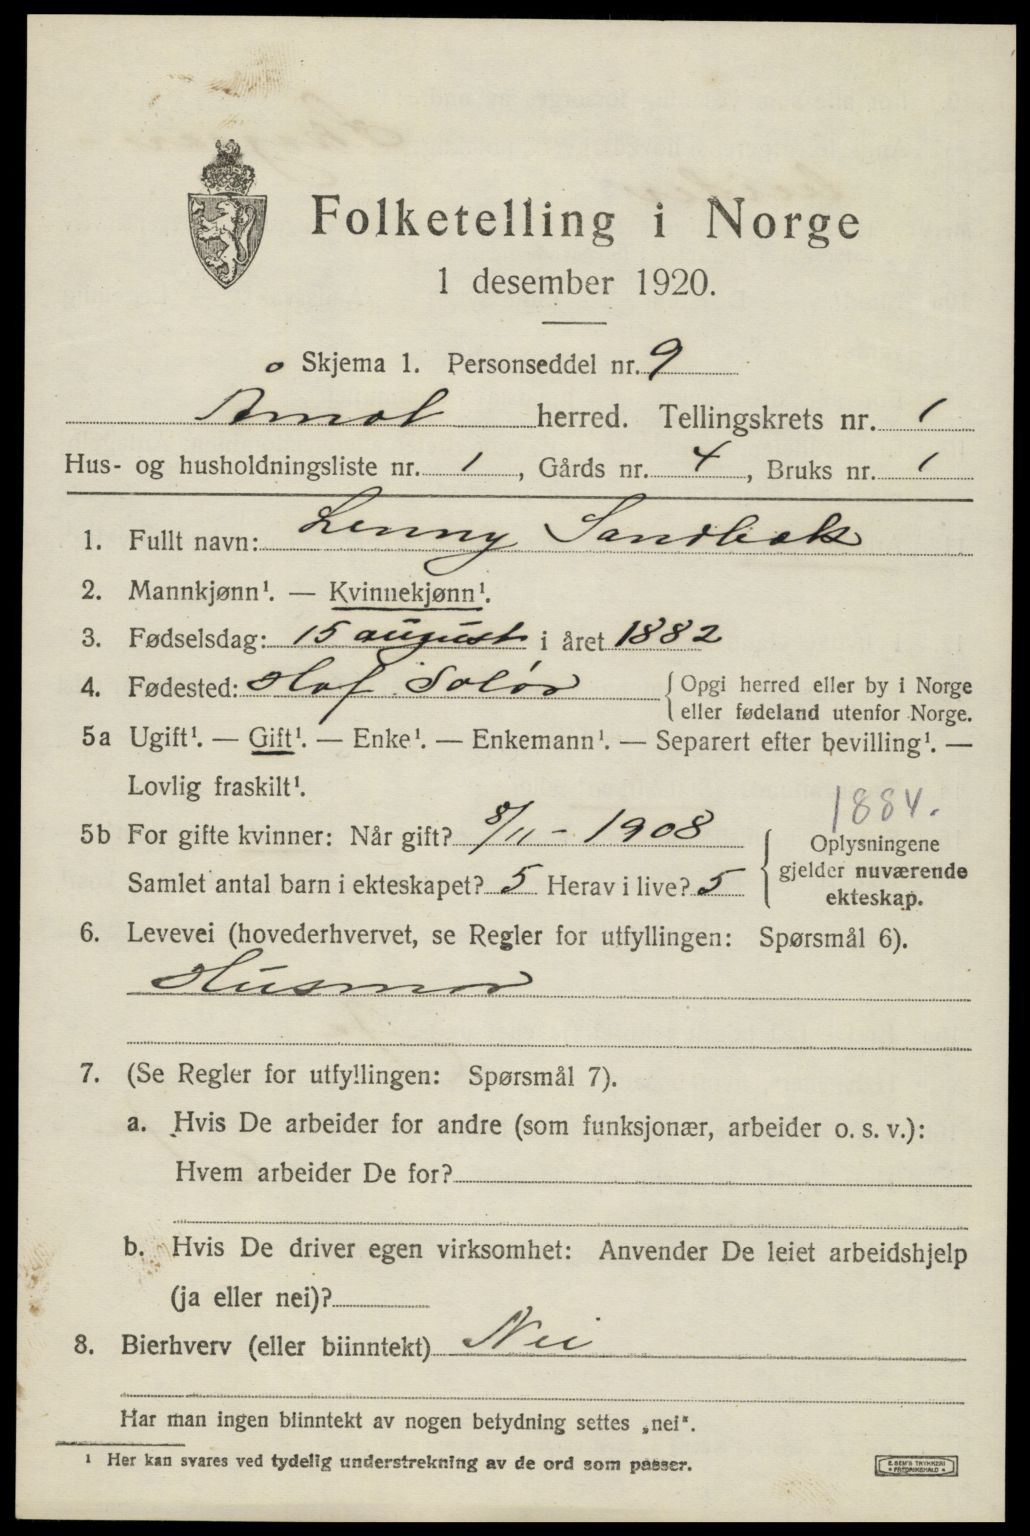 Folketelling i Norge
1 desember 1920.
Skjema 1. Personseddel nr. 9
Åmot herred. Tellingskrets nr. 1
Hus- og husholdningsliste nr. 1, Gårds nr. 4, Bruks nr. 1
1. Fullt navn: Lenny Sandbæk
2. Mannkjønn¹. — Kvinnekjønn¹.
3. Fødselsdag: 15 august i året 1882
4. Fødested: Hof Solør { Opgi herred eller by i Norge
eller fødeland utenfor Norge.
5a Ugift¹. — Gift¹. — Enke¹. — Enkemann¹. — Separert efter bevilling¹. —
Lovlig fraskilt¹.
1884.
5b For gifte kvinner: Når gift? 8/11 - 1908
Samlet antal barn i ekteskapet? 5 Herav i live? 5
Oplysningene
gjelder nuværende
ekteskap.
6. Levevei (hovederhvervet, se Regler for utfyllingen: Spørsmål 6).
Husmor
7. (Se Regler for utfyllingen: Spørsmål 7).
a. Hvis De arbeider for andre (som funksjonær, arbeider o. s. v.):
Hvem arbeider De for?
b. Hvis De driver egen virksomhet: Anvender De leiet arbeidshjelp
(ja eller nei)?
8. Bierhverv (eller biinntekt) Nei
Har man ingen biinntekt av nogen betydning settes „nei".
¹ Her kan svares ved tydelig understrekning av de ord som passer.
E. SEM'S TRYKKERI
FREDRIKSHALD